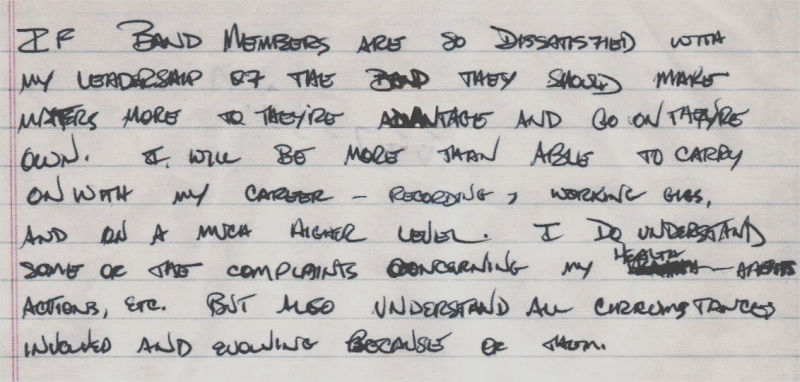 IF BAND MEMBERS ARE SO DISSATISFIED WITH
MY LEADERSHIP OF THE BAND THEY SHOULD MAKE
MATTERS MORE TO THEY'RE ADVANTAGE AND GO ON THEY'RE
OWN. I WILL BE MORE THAN ABLE TO CARRY
ON WITH MY CAREER - RECORDING, WORKING GIGS,
AND ON A MUCH HIGHER LEVEL. I DO UNDERSTAND
SOME OF THE COMPLAINTS CONCERNING MY HEALTH
ACTIONS, ETC. BUT ALSO UNDERSTAND ALL CIRCUMSTANCES
INVOLVED AND EVOLVING BECAUSE OF THEM.